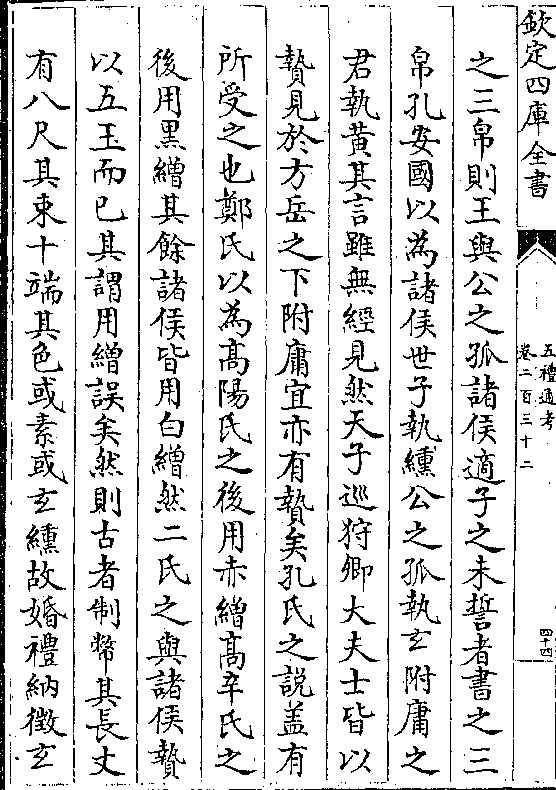 欽定四庫全書
五禮通考
卷二百三十二
四十四
之三帛則王與公之孤諸侯適子之未誓者書之三
帛孔安國以為諸侯世子執纁公之孤執𤣥附庸之
君執黄其言雖無經見然天子巡狩卿大夫士皆以
贄見於方岳之下附庸宜亦有贄矣孔氏之說盖有
所受之也鄭氏以為髙陽氏之後用赤繒髙辛氏之
後用黒繒其餘諸侯皆用白繒然二氏之與諸侯贄
以五玉而已其謂用繒誤矣然則古者制幣其長丈
有八尺其束十端其色或素或𤣥纁故婚禮納徵𤣥